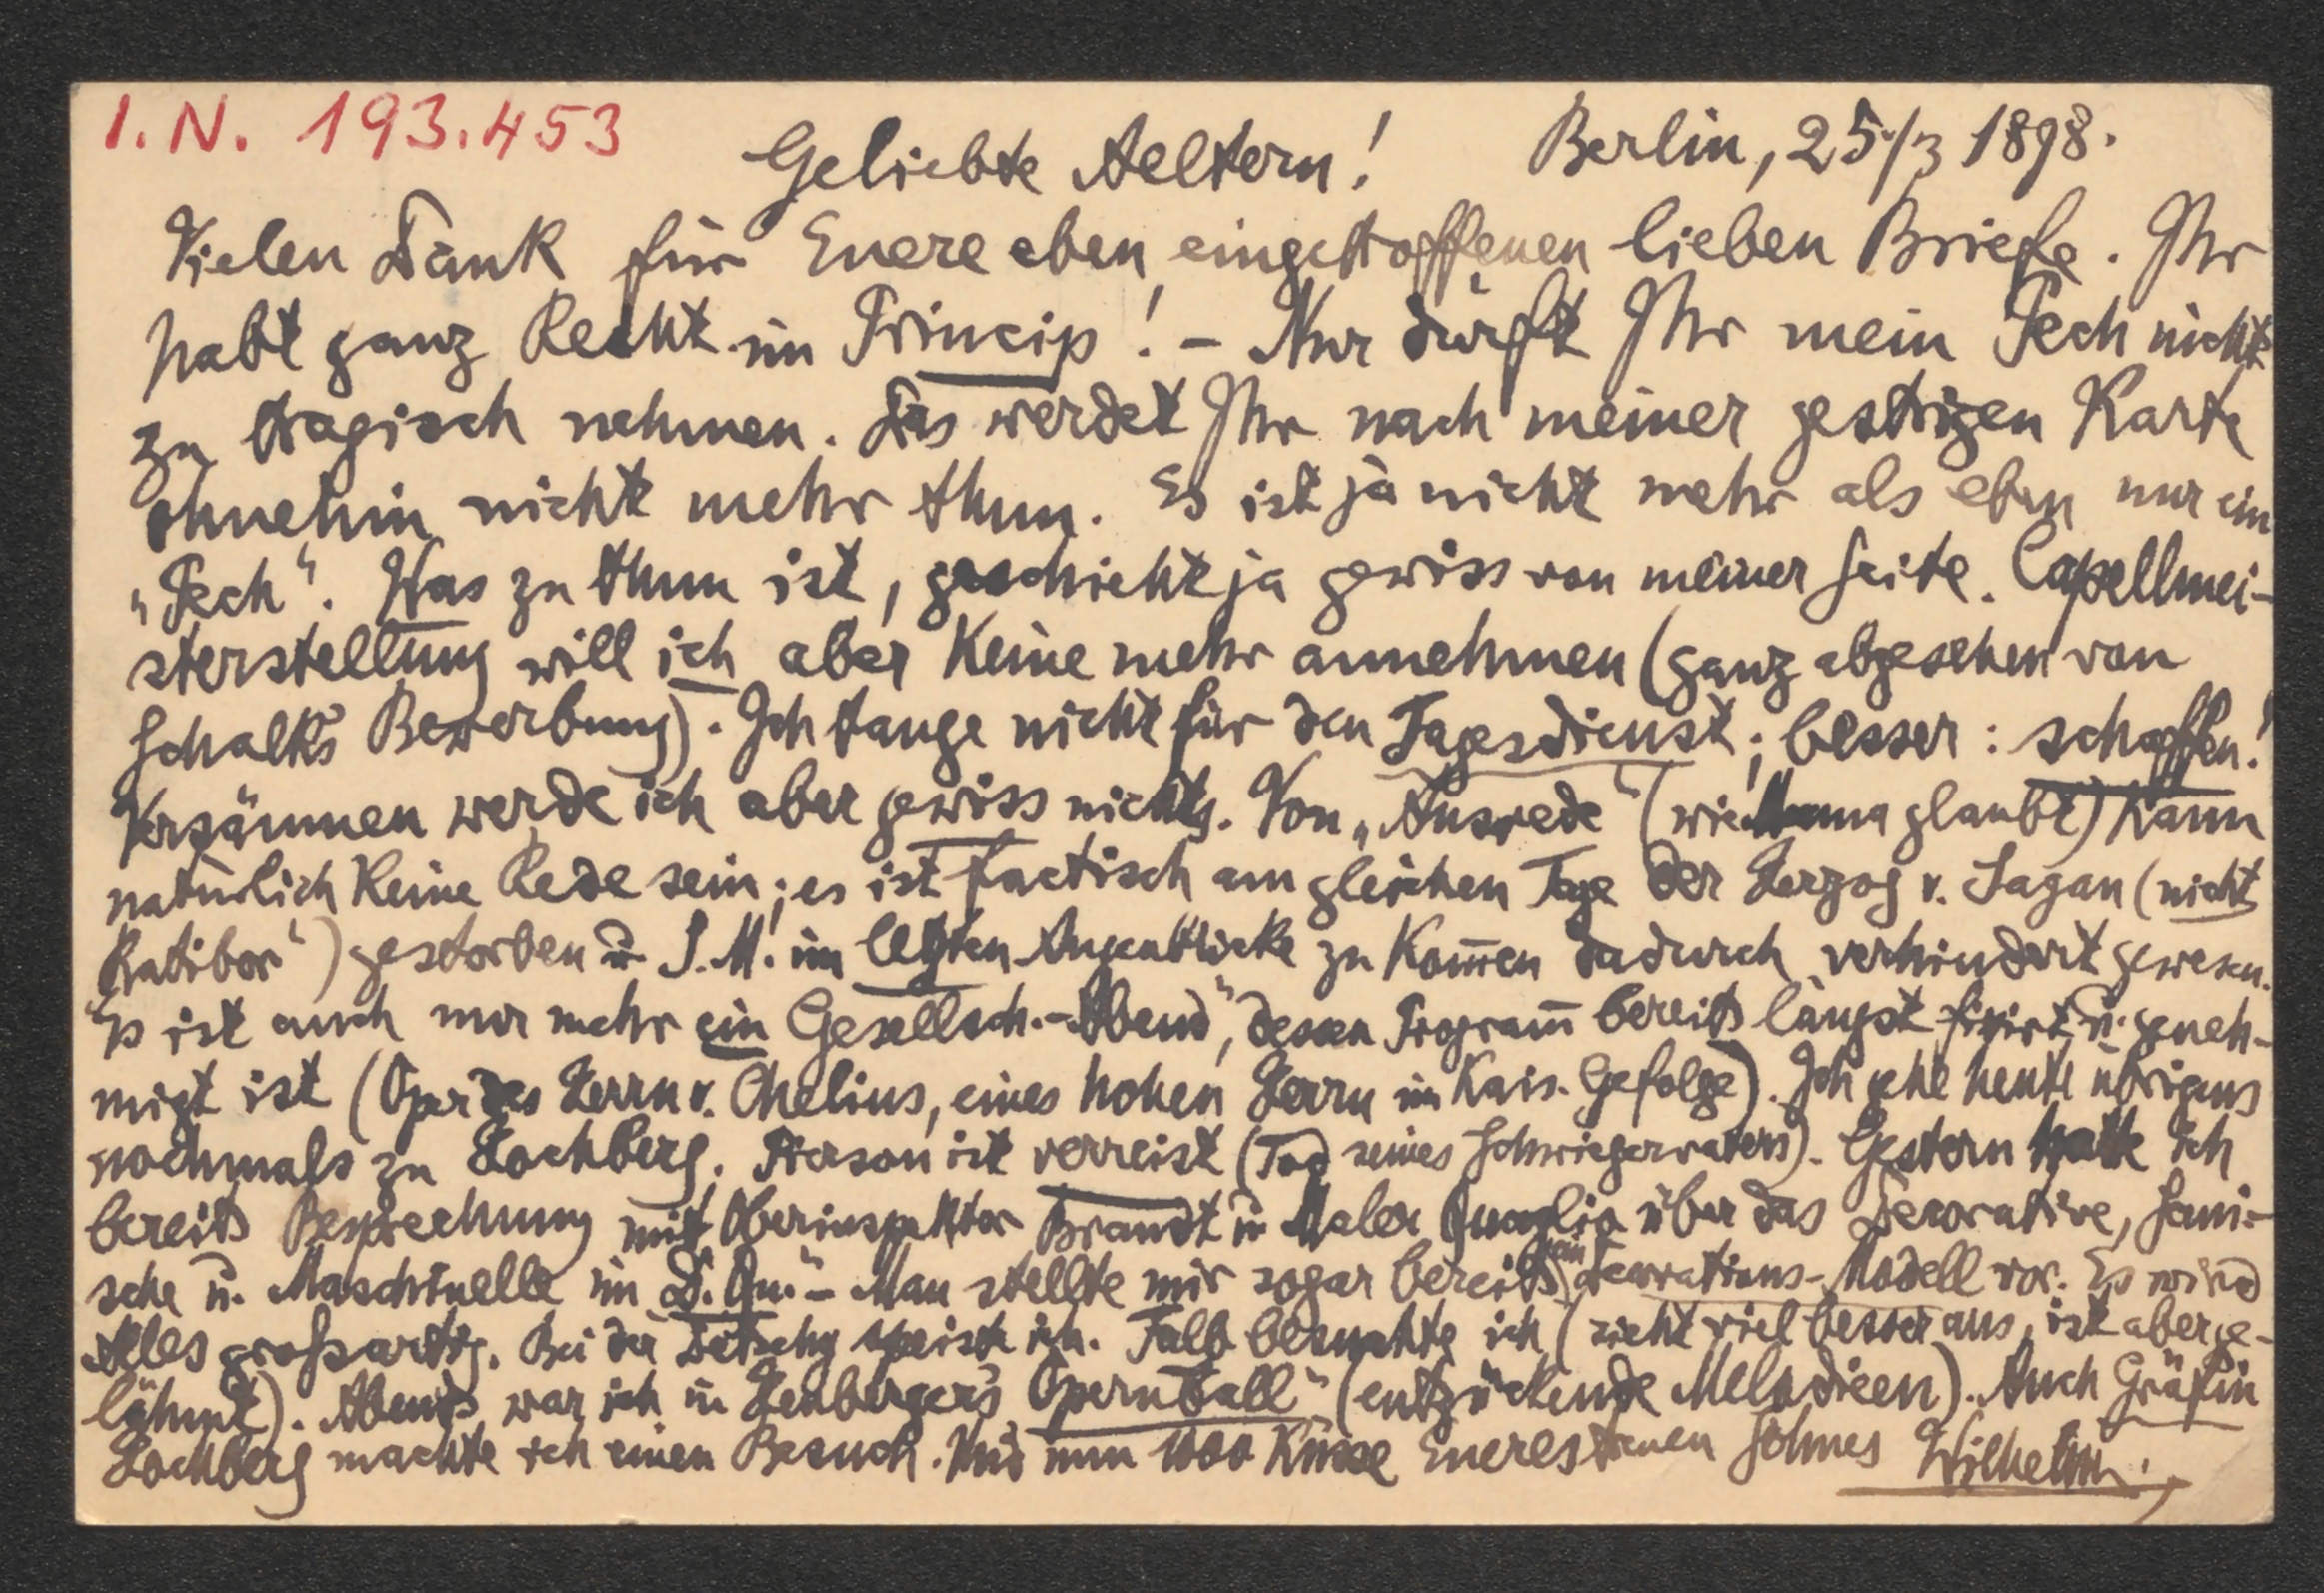 I.N. 193.453
Geliebte Aeltern! Berlin, 25/3 1898.
Vielen Dank für Euere eben eingetroffenen lieben Briefe. Ihr
habt ganz Recht im Princip! – Nur dürft Ihr mein Pech nicht
zu tragisch nehmen. Das werdet Ihr nach meiner gestrigen Karte
ohnehin nicht mehr thun. Es ist ja nicht mehr als eben nur ein
„Pech“. Was zu thun ist, geschieht ja gewiss von meiner Seite. Capellmei-
sterstellung will ich aber keine mehr annehmen (ganz abgesehen von
Schalk's Bewerbung). Ich tauge nicht für den Tagesdienst; besser: schaffen!
Versäumen werde ich aber gewiss nichts. Von „Ausrede“ (wie Mama glaubt) kann
natürlich keine Rede sein; es ist factisch am gleichen Tage der Herzog v. Sagan (nicht
„Ratibor“) gestorben u. S.M. im letzten Augenblicke zu kom̄en dadurch verhindert gewesen.
Es ist auch nur mehr ein „Gesellsch.-Abend“, dessen Program̄ bereits längst fixirt u. geneh-
migt ist (Oper des Herrn v. Chelius, eines hohen Herrn im kais. Gefolge). Ich gehe heute übrigens
nochmals zu Hochberg. Pierson ist verreist (Tod seines Schwiegervaters). Gestern hatte ich
bereits Besprechung mit Oberinspektor Brandt u Maler Quaglio über das Decorative, Sceni-
sche u. Maschinelle im „D. Qu.“ – Man stellte mir sogar bereits ein Decorations-Modell vor. Es wird
Alles großartig. Bei der speiste ich. Falb besuchte ich (sieht viel besser aus, ist aber ge-
lähmt). Abends war ich in Heubergers „Opernball“ (entzückende Melodieen). Auch Gräfin
Hochberg machte ich einen Besuch. Und nun 1000 Küsse Eueres treuen Sohnes Wilhelm.